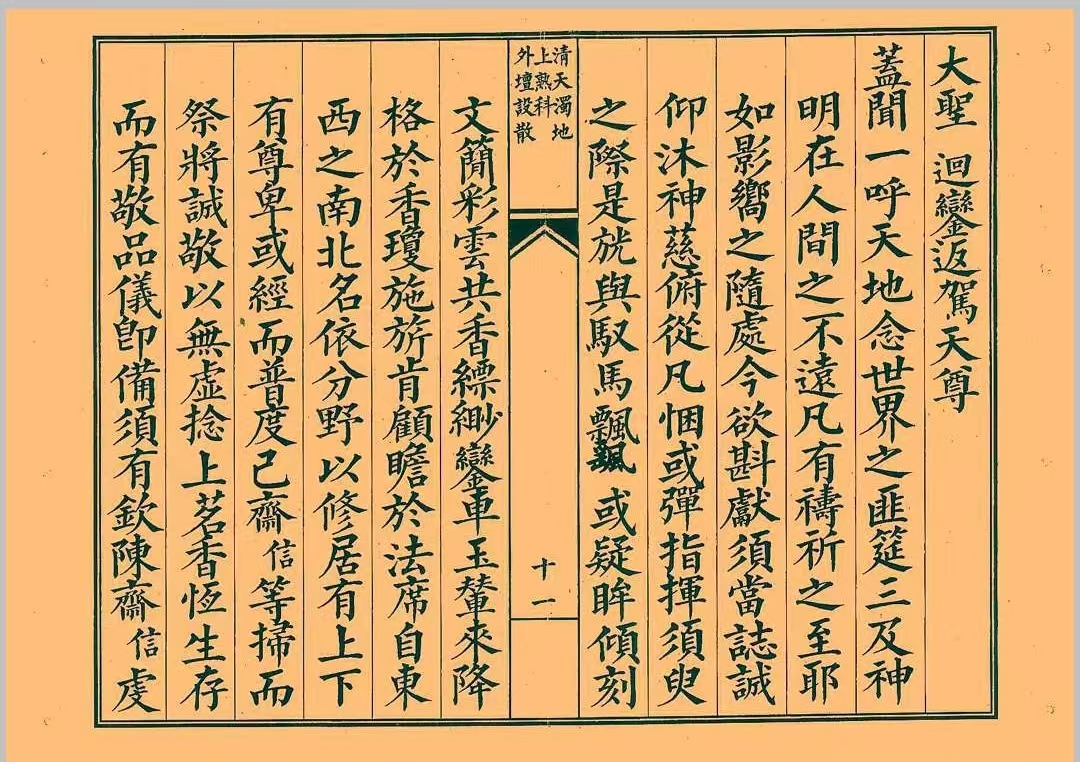 大聖 迴鑾返駕天尊
蓋聞一呼天地念世界之匪筵三及神
明在人間之不遠凡有禱祈之至耶
如影嚮之隨處今欲斟獻須當誌誠
仰沐神慈俯從凡悃或彈指揮須臾
之際是旄與馭馬飄飄或疑眸傾刻
清天濁地
上熟科
外壇設散
十一
文簡彩雲共香縹緲鑾車玉輦來降
格於香瓊施旂肯顧瞻於法席自東
西之南北名依分野以修居有上下
有尊卑或經而普度已齋信等掃而
祭將誠敬以無虛捻上茗香恆生存
而有敬品儀卽備須有欽陳齋信虔